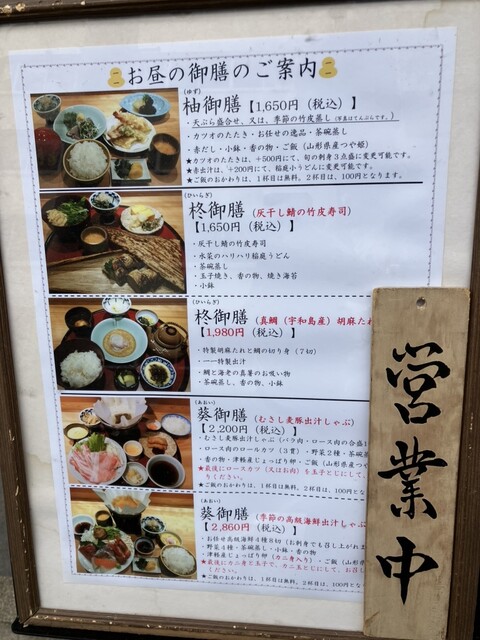 お昼の御膳のご案内
(ゆず)
柚御膳【1,650円（税込）】
・天ぷら盛合せ、又は、季節の竹皮蒸し（写真はてんぷらです。）
・カツオのたたき・お任せの逸品・茶碗蒸し
・赤だし・小鉢・香の物・ご飯（山形県産つや姫）
★カツオのたたきは、＋500円にて、旬の刺身３点盛に変更可能です。
★赤出汁は、＋200円にて、稲庭小うどんに変更可能です。
★ご飯のおかわりは、１杯目は無料。２杯目は、100円となります。
(ひいらぎ)
柊御膳（灰干し鯖の竹皮寿司）
【1,650円（税込）】
・灰干し鯖の竹皮寿司
・水菜のハリハリ稲庭うどん
・茶碗蒸し
・玉子焼き、香の物、焼き海苔
・小鉢
(ひいらぎ)
柊御膳（真鯛（宇和島産）胡麻たれ
【1,980円（税込）】
・特製胡麻たれと鯛の切り身（７切）
・一一特製出汁
・鯛と海老の真薯のお吸い物
・茶碗蒸し、香の物、小鉢
(あおい)
葵御膳（むさし麦豚出汁しゃぶ）
【2,200円（税込）】
・むさし麦豚出汁しゃぶ（バラ肉・ロース肉の合盛
・ロース肉のロールカツ（３貫）・野菜２種・茶碗蒸
・香の物・津軽産じょっぱり卵・ご飯（山形県産つや
★最後にロースカツ（又はお肉）を玉子とじにして、お
りください。
★ご飯のおかわりは、１杯目は無料、２杯目は、100円
(あおい)
葵御膳（季節の高級海鮮出汁しゃぶ
【2,860円（税込）】
・お任せ高級海鮮４種８切（お刺身でも召し上がれま
・野菜４種・茶碗蒸し・小鉢・香の物
・津軽産じょっぱり卵（カニ身入り）・ご飯（山形県
★最後にカニ身と玉子で、カニ玉とじにして、お召し
ください。
★ご飯のおかわりは、１杯目は無料、２杯目は、100円とな
営業中